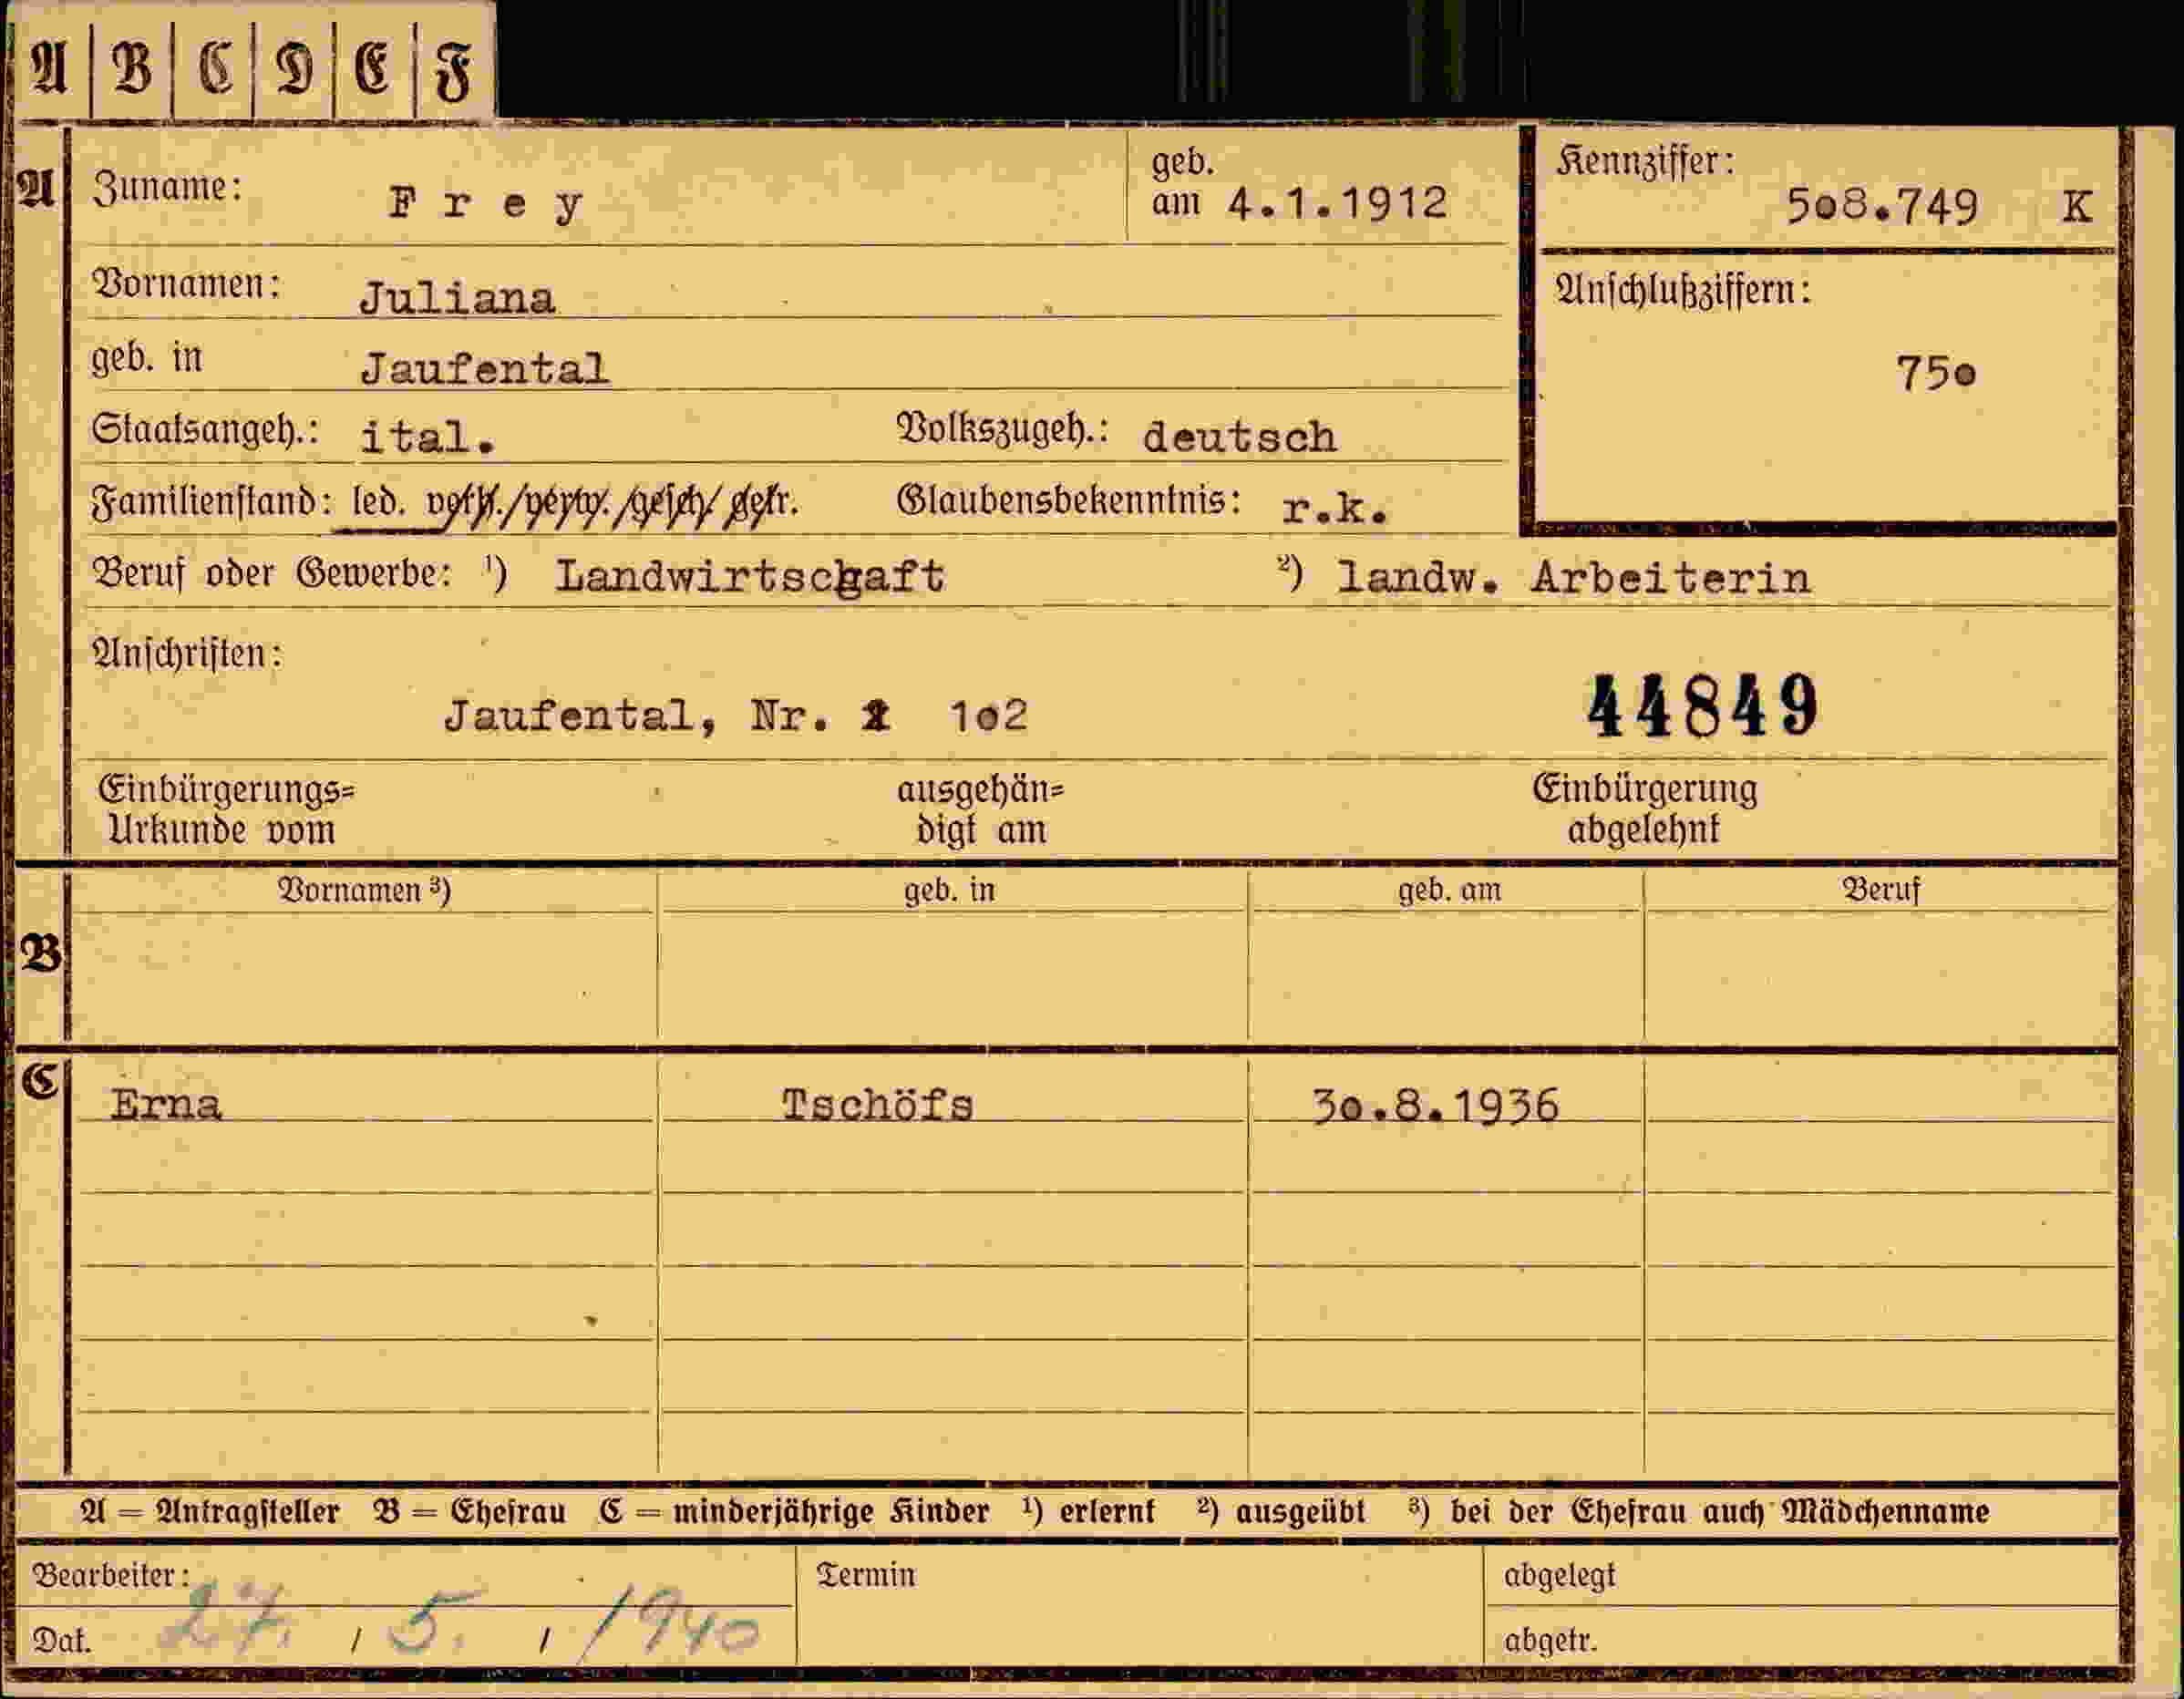 A B C D E F
A Zuname: Frey geb. am 4.1.1912 Kennziffer: 508.749 K
Vornamen: Juliana Anschlußziffern:
geb. in Jaufental 750
Staatsangeh.: ital. Volkszugeh.: deutsch
Familienstand: led. verh./verw./gesch/ getr. Glaubensbekenntnis: r.k.
Beruf oder Gewerbe: ¹) Landwirtschaft ²) landw. Arbeiterin
Anschriften:
Jaufental, Nr. 102 44849
Einbürgerungs= ausgehän= Einbürgerung
Urkunde vom digt am abgelehnt
Vornamen ³) geb. in geb. am Beruf
B
C Erna Tschöfs 30.8.1936
A = Antragsteller B = Ehefrau C = minderjährige Kinder ¹) erlernt ²) ausgeübt ³) bei der Ehefrau auch Mädchenname
Bearbeiter: Termin abgelegt
Dat. 27. / 5. / 1940 abgetr.